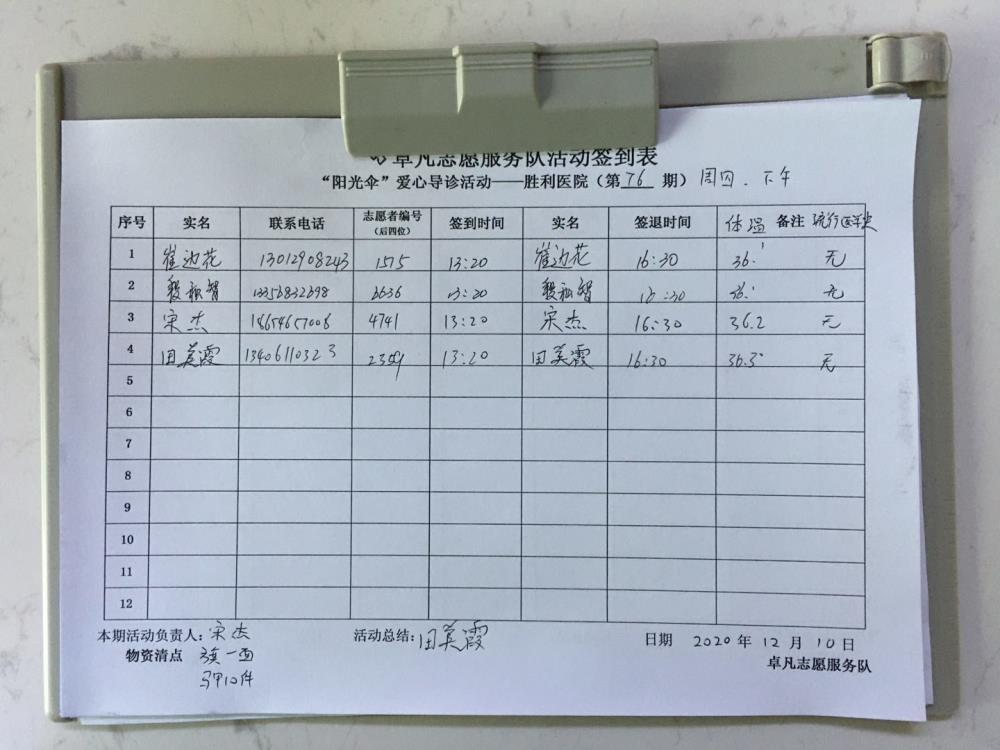 卓凡志愿服务队活动签到表
“阳光伞”爱心导诊活动——胜利医院（第 76 期）周四．下午
序号 实名 联系电话 志愿者编号（后四位） 签到时间 实名 签退时间 体温 备注 流行医学史
1 崔边花 13012908243 1515 13:20 崔边花 16:30 36.1 无
2 6636 13:20 16:30 36.1 无
3 宋杰 18654657006 4741 13:20 宋杰 16:30 36.2 无
4 田美霞 13406110323 2359 13:20 田美霞 16:30 36.5° 无
5
6
7
8
9
10
11
12
本期活动负责人：宋杰 活动总结：田美霞 日期 2020 年 12 月 10 日
物资清点 旗一面 卓凡志愿服务队
马甲10件